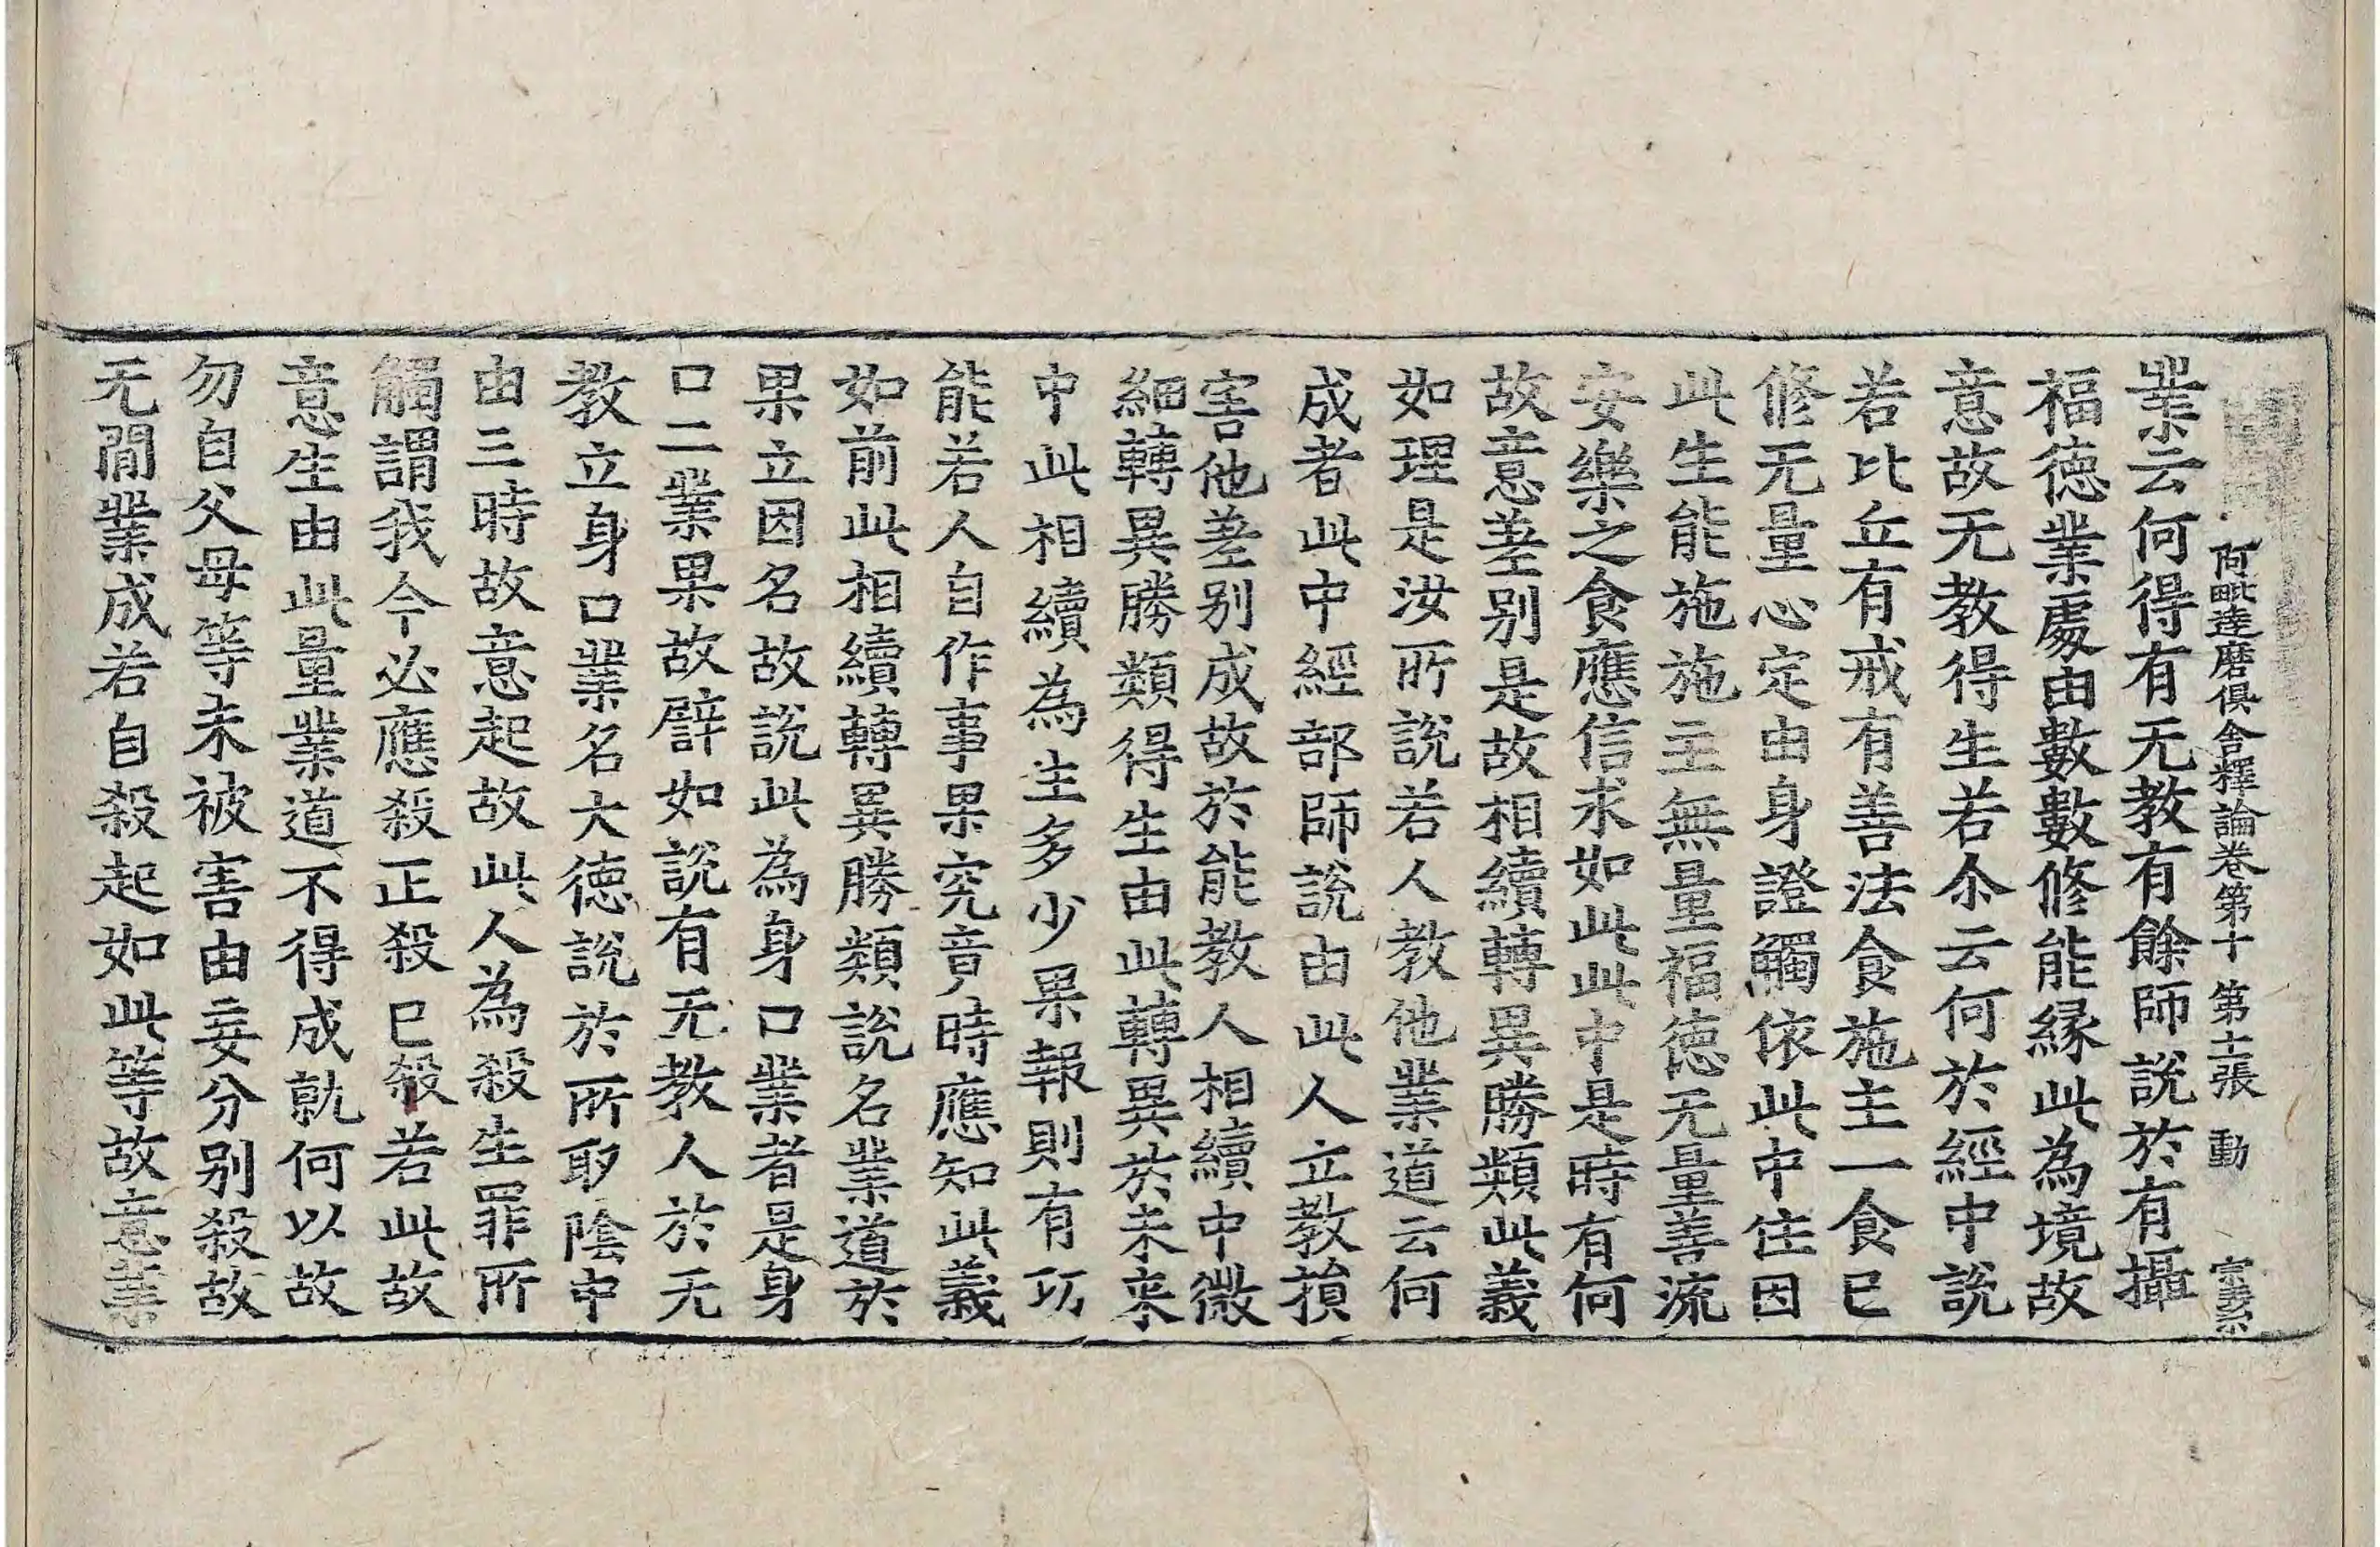 阿毗達磨俱舍釋論卷第十 第十一張 動
業云何得有无教有餘師說於有攝
福德業處由數數修能緣此為境故
意故无教得生若尒云何於經中說
若比丘有戒有善法食施主一食已
修无量心定由身證觸依此中住因
此生能施施主無量福德无量善流
安樂之食應信求如此此中是時有何
故意差别是故相續轉異勝類此義
如理是汝所說若人教他業道云何
成者此中經部師說由此人立教損
害他差别成故於能教人相續中微
細轉異勝類得生由此轉異於未來
中此相續為生多少果報則有功
能若人自作事果究竟時應知此義
如前此相續轉異勝類說名業道於
果立因名故說此為身口業者是身
口二業果故譬如說有无教人於无
教立身口業名大德說於所取陰中
由三時故意起故此人為殺生罪所
觸謂我今必應殺正殺已殺若此故
意生由此量業道不得成就何以故
勿自父母等未被害由妄分别殺故
无間業成若自殺起如此等故意業